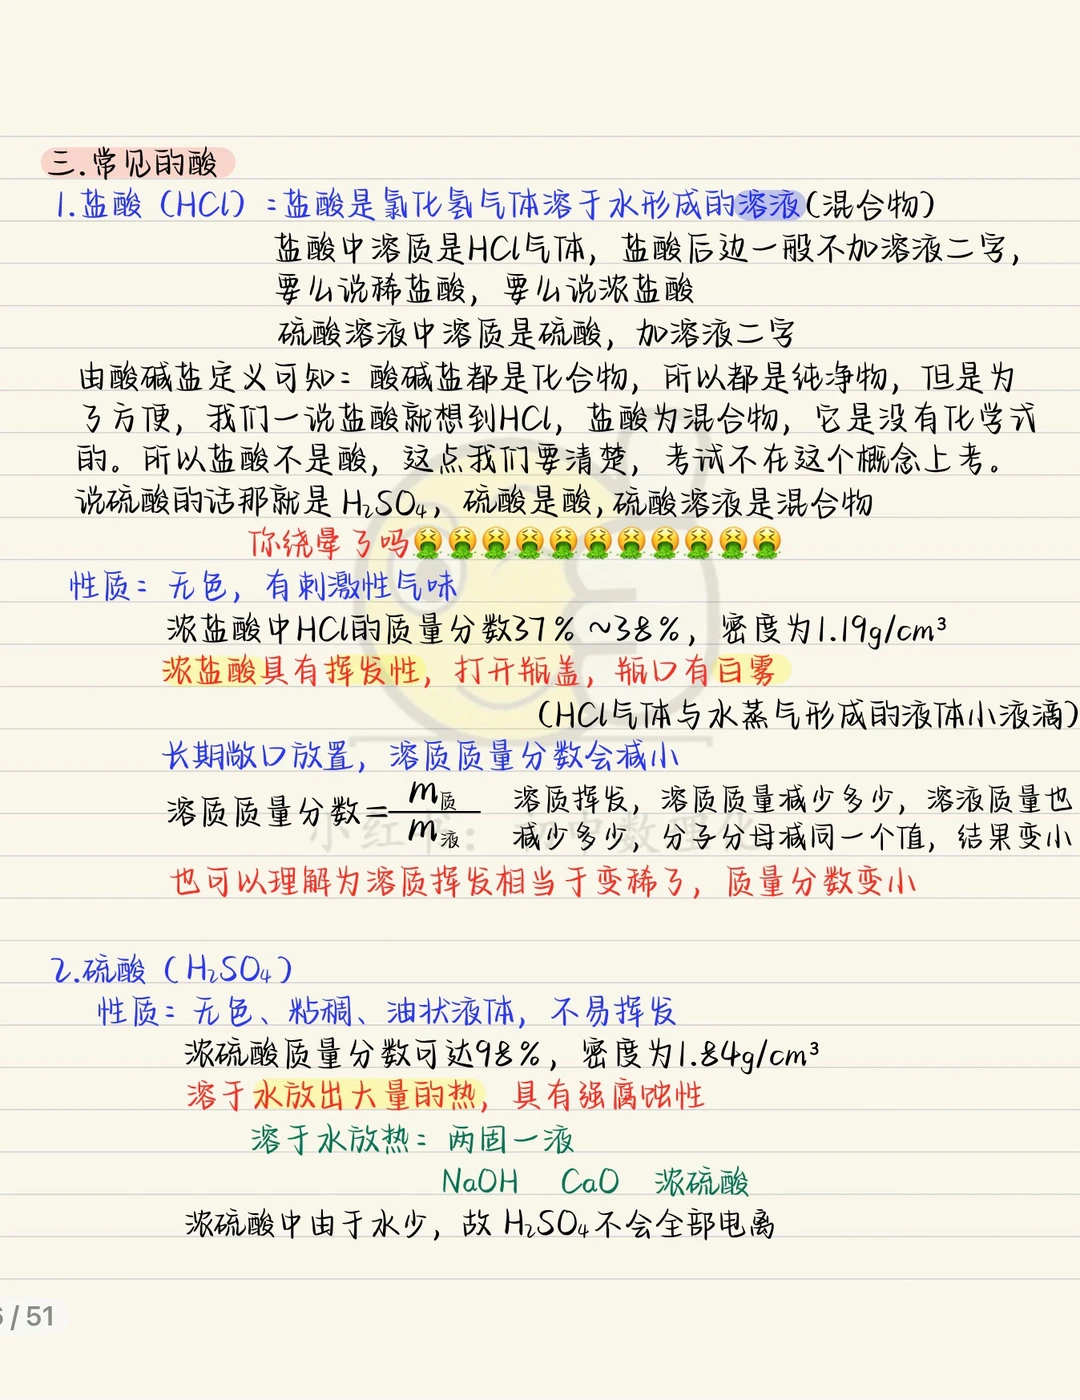 三.常见的酸
1.盐酸（HCl）：盐酸是氯化氢气体溶于水形成的溶液(混合物)
盐酸中溶质是HCl气体，盐酸后边一般不加溶液二字，
要么说稀盐酸，要么说浓盐酸
硫酸溶液中溶质是硫酸，加溶液二字
由酸碱盐定义可知：酸碱盐都是化合物，所以都是纯净物，但是为
了方便，我们一说盐酸就想到HCl，盐酸为混合物，它是没有化学式
的。所以盐酸不是酸，这点我们要清楚，考试不在这个概念上考。
说硫酸的话那就是H₂SO₄，硫酸是酸，硫酸溶液是混合物
你绕晕了吗🤮🤮🤮🤮🤮🤮🤮🤮🤮🤮🤮
性质：无色，有刺激性气味
浓盐酸中HCl的质量分数37%~38%，密度为1.19g/cm³
浓盐酸具有挥发性，打开瓶盖，瓶口有白雾
（HCl气体与水蒸气形成的液体小液滴）
长期敞口放置，溶质质量分数会减小
溶质质量分数=m质/m液 溶质挥发，溶质质量减少多少，溶液质量也
减少多少，分子分母减同一个值，结果变小
小红书：初中数理化
也可以理解为溶质挥发相当于变稀了，质量分数变小
2.硫酸（H₂SO₄）
性质：无色、粘稠、油状液体，不易挥发
浓硫酸质量分数可达98%，密度为1.84g/cm³
溶于水放出大量的热，具有强腐蚀性
溶于水放热：两固一液
NaOH CaO 浓硫酸
浓硫酸中由于水少，故H₂SO₄不会全部电离
/ 51